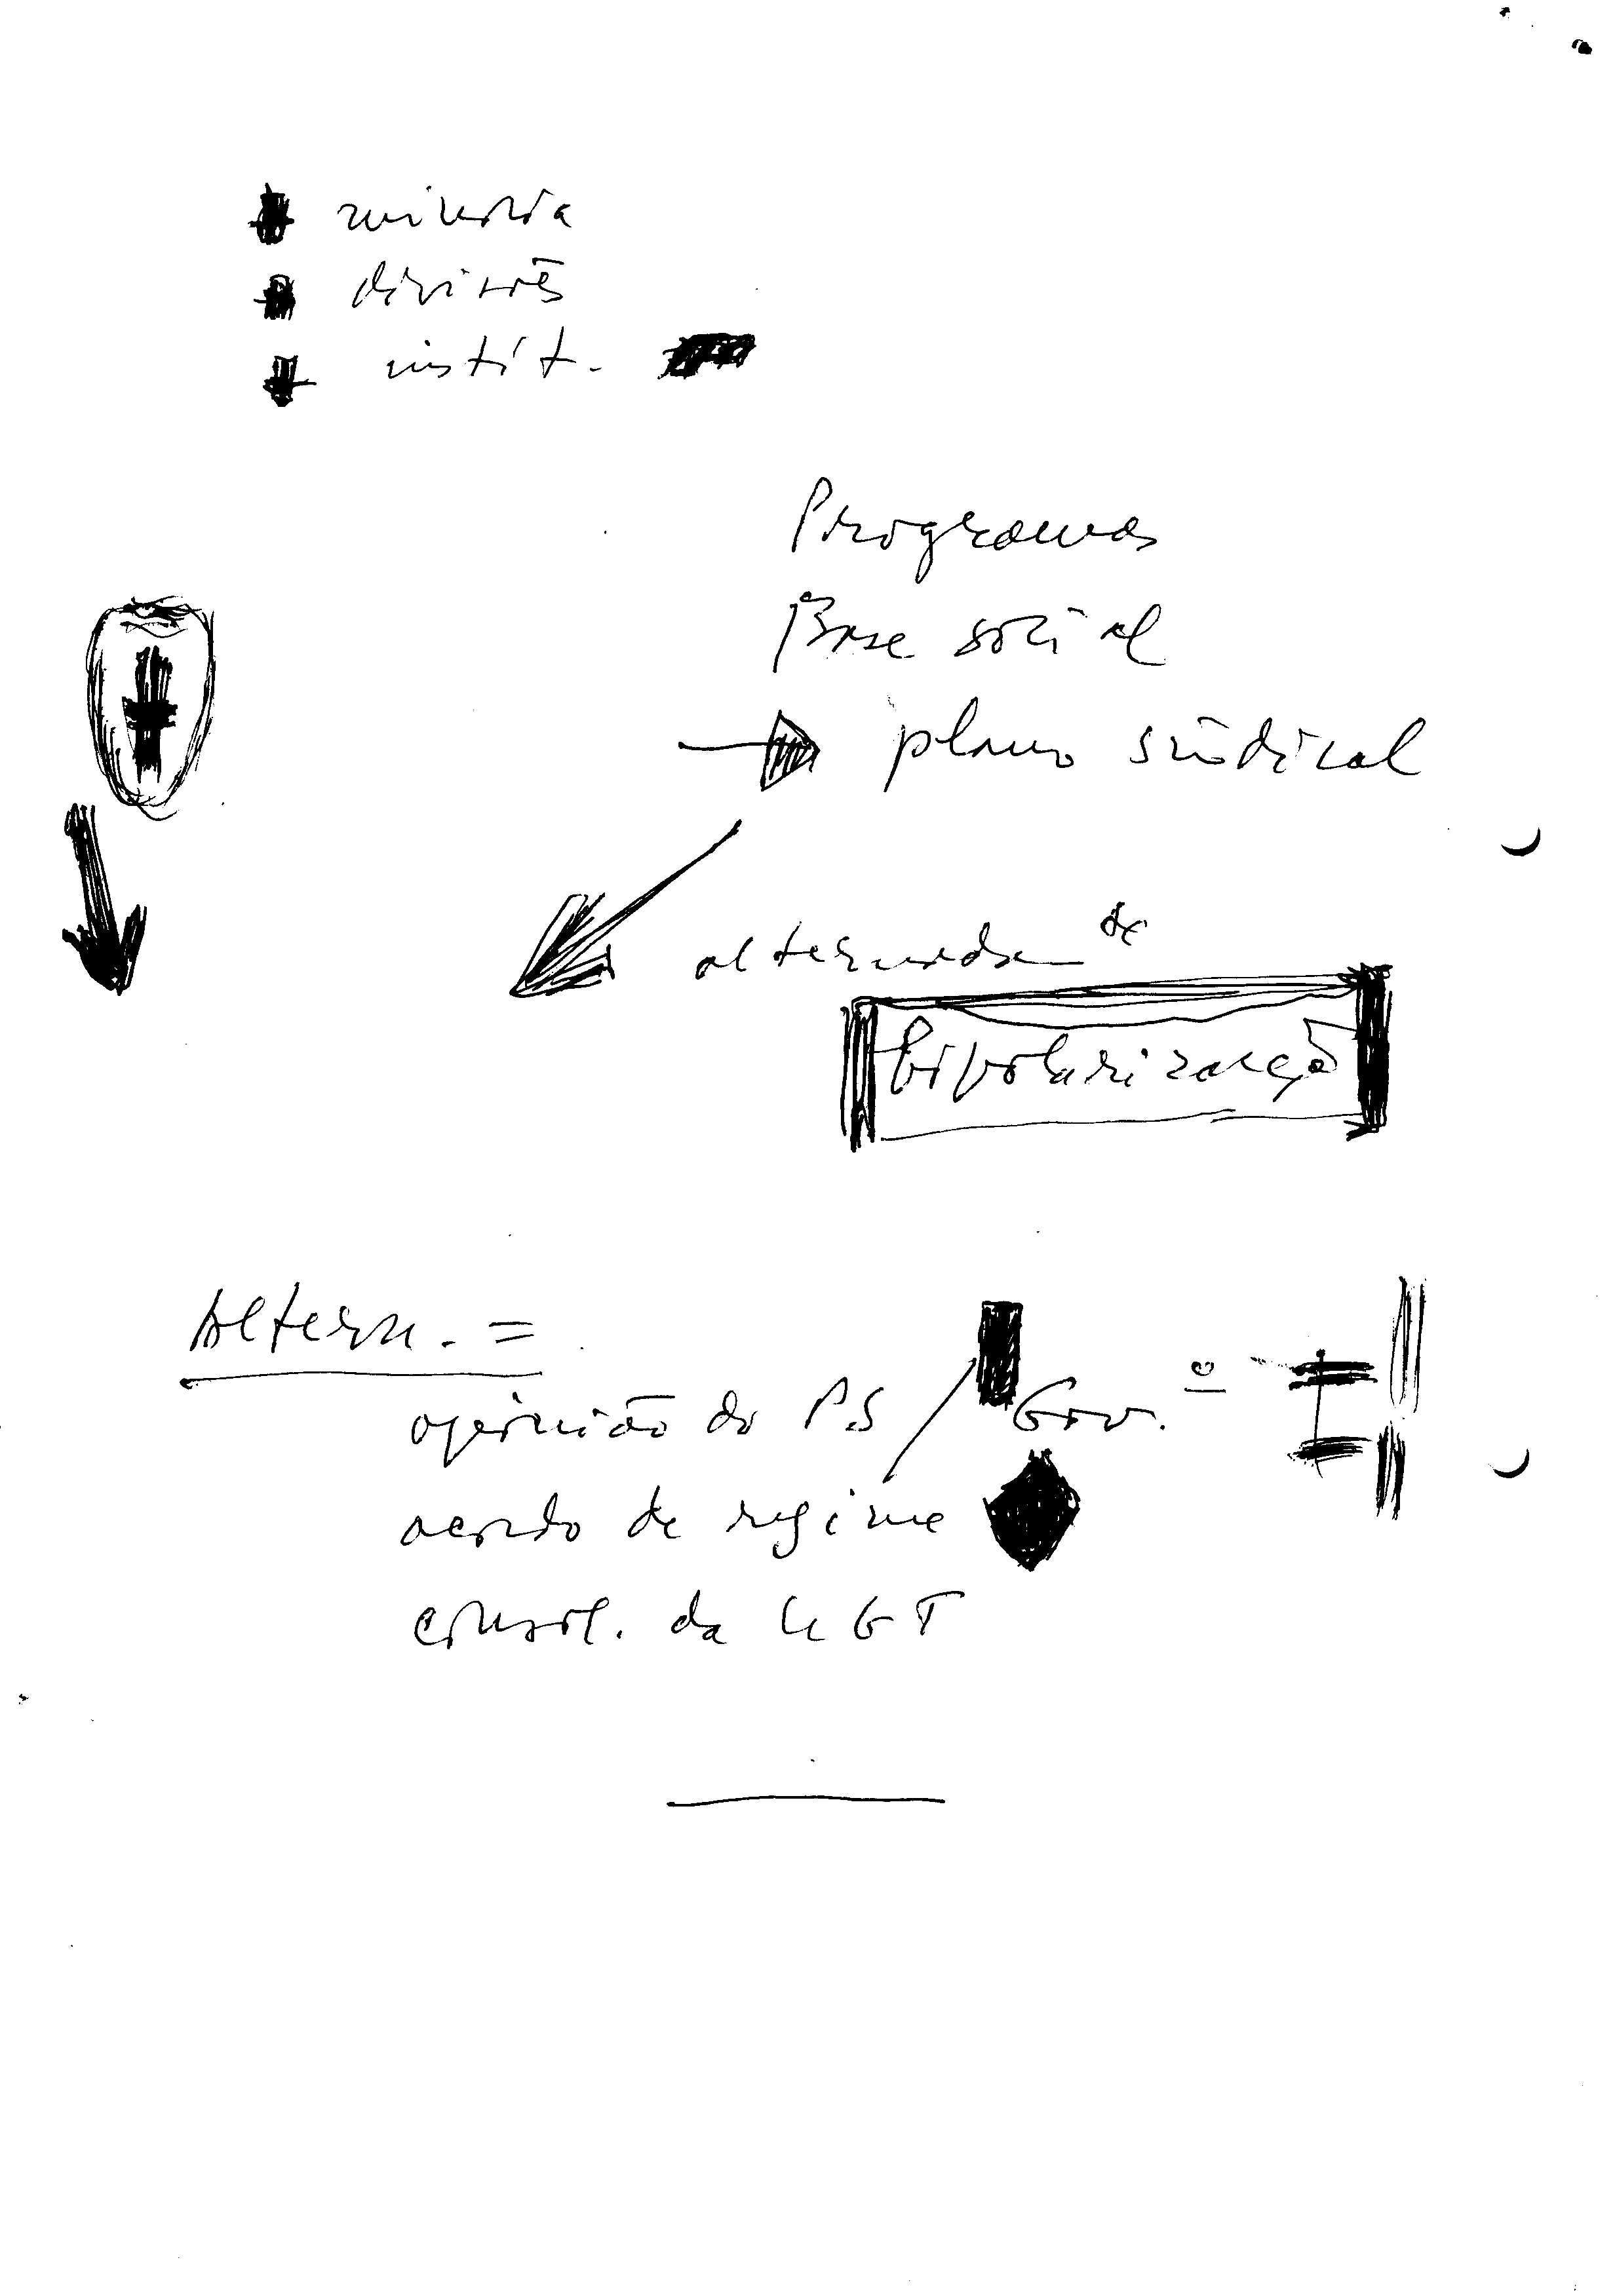 minoria
divisões
instit.
Programas
Base social
plano sindical
de
bipolarização
Altern. =
opinião do PS / Gov.
acordo de regime
consol. da UGT